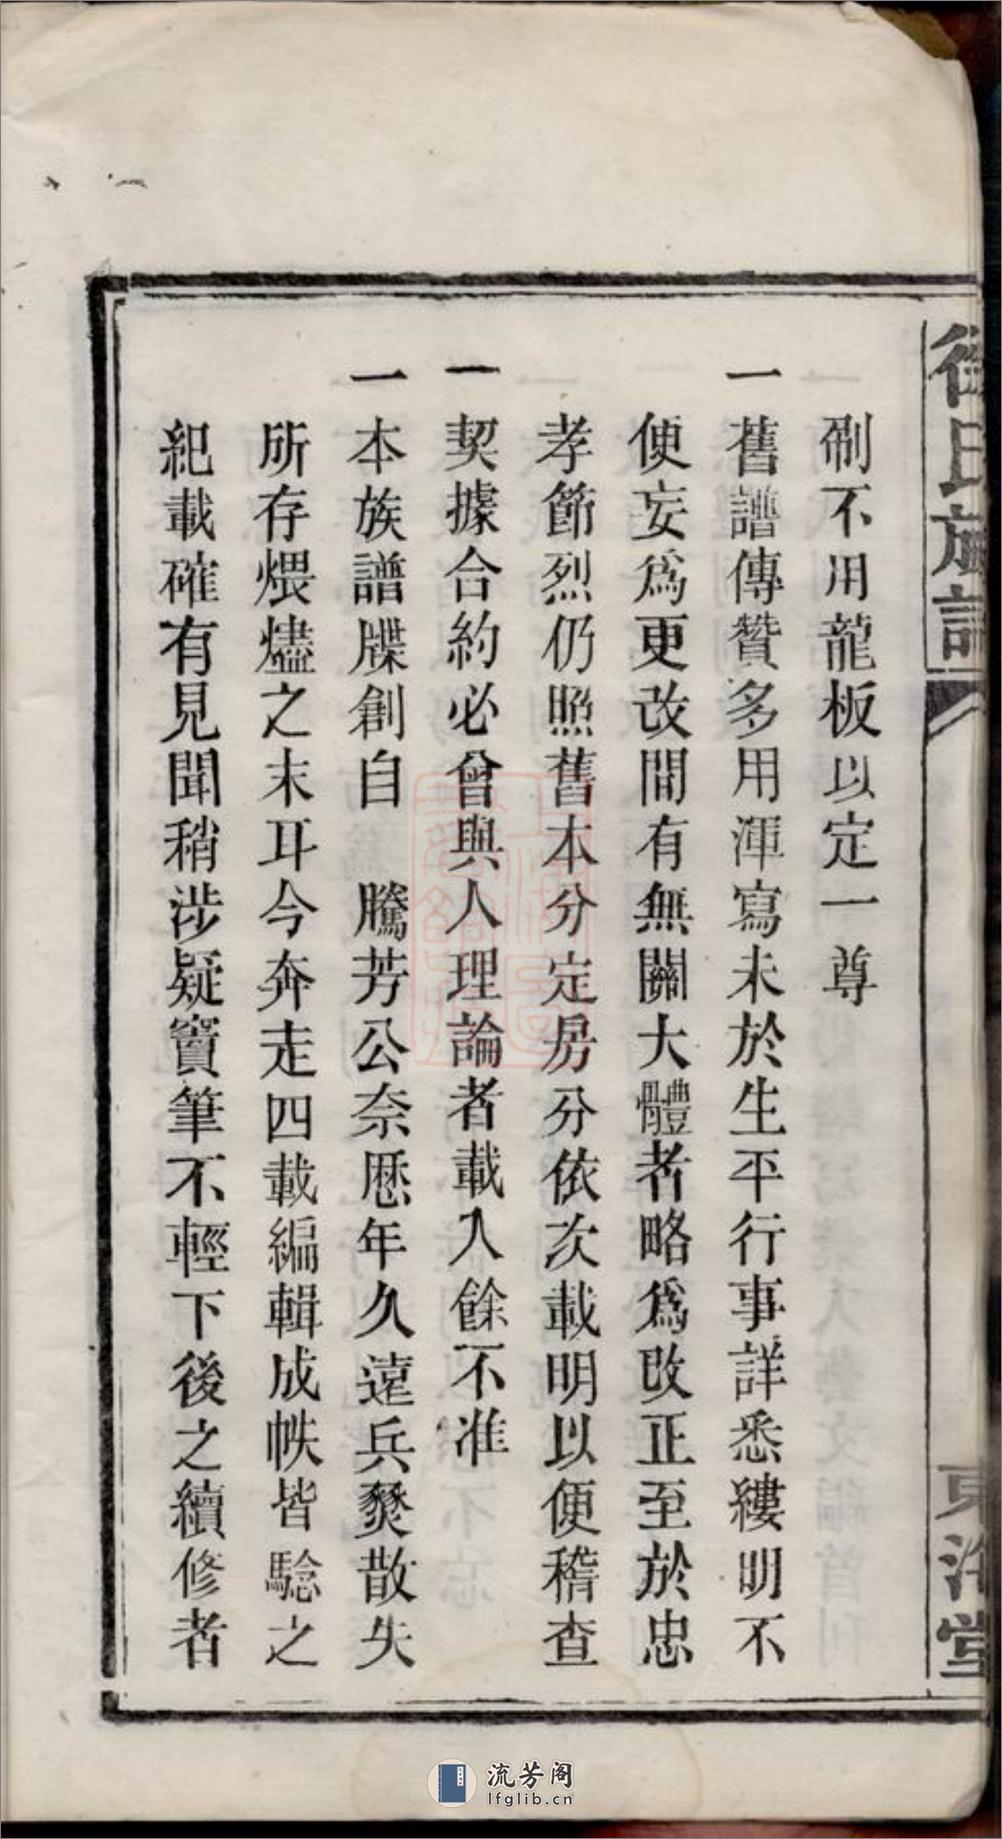 徐氏族譜
東海堂
刷不用龍板以定一尊
一舊譜傳贊多用渾寫未於生平行事詳悉縷明不
便妄爲更改間有無關大體者略爲改正至於忠
孝節烈仍照舊本分定房分依次載明以便稽查
一契據合約必曾與人理論者載入餘不准
一本族譜牒創自 騰芳公奈歷年久遠兵燹散失
所存煨燼之末耳今奔走四載編輯成帙皆騐之
紀載確有見聞稍涉疑竇筆不輕下後之續修者
流芳阁
lfglib.cn